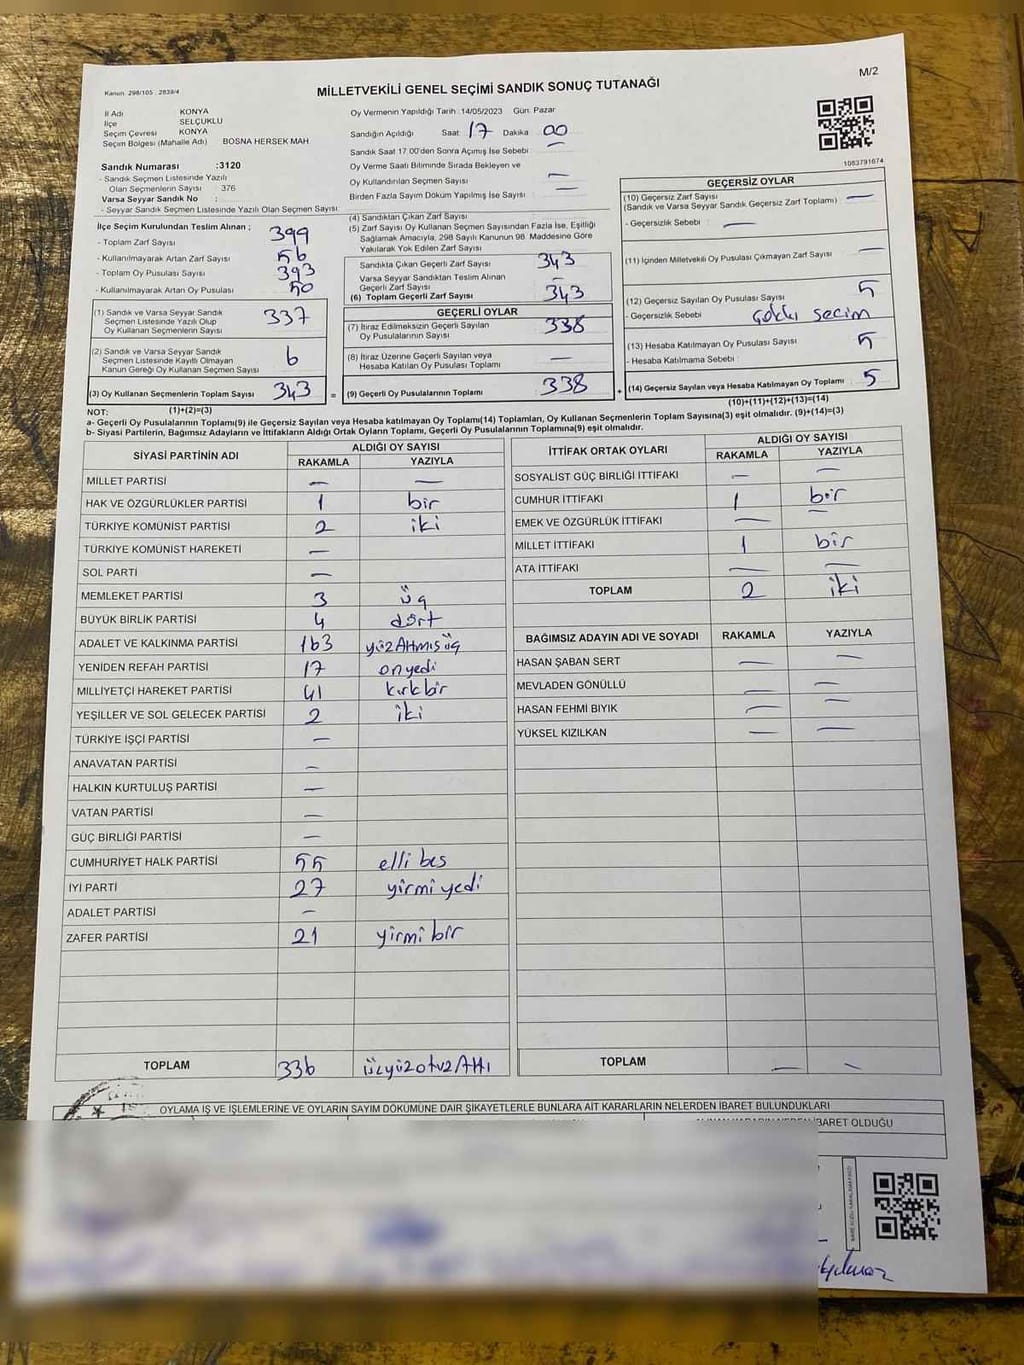 Kanun: 298/105 , 2839/4
MİLLETVEKİLİ GENEL SEÇİMİ SANDIK SONUÇ TUTANAĞI
M/2
İl Adı KONYA
İlçe SELÇUKLU
Seçim Çevresi KONYA
Seçim Bölgesi (Mahalle Adı) BOSNA HERSEK MAH
Sandık Numarası :3120
- Sandık Seçmen Listesinde Yazılı
Olan Seçmenlerin Sayısı : 376
Varsa Seyyar Sandık No :
- Seyyar Sandık Seçmen Listesinde Yazılı Olan Seçmen Sayısı:
İlçe Seçim Kurulundan Teslim Alınan ;
- Toplam Zarf Sayısı 399
- Kullanılmayarak Artan Zarf Sayısı 56
- Toplam Oy Pusulası Sayısı 393
- Kullanılmayarak Artan Oy Pusulası 50
(1) Sandık ve Varsa Seyyar Sandık
Seçmen Listesinde Yazılı Olup
Oy Kullanan Seçmenlerin Sayısı 337
(2) Sandık ve Varsa Seyyar Sandık
Seçmen Listesinde Kayıtlı Olmayan
Kanun Gereği Oy Kullanan Seçmen Sayısı 6
(3) Oy Kullanan Seçmenlerin Toplam Sayısı 343 =
Oy Vermenin Yapıldığı Tarih :14/05/2023 Gün: Pazar
Sandığın Açıldığı Saat: 17 Dakika 00
Sandık Saat 17:00'den Sonra Açımış İse Sebebi : —
Oy Verme Saati Bitiminde Sırada Bekleyen ve
Oy Kullandırılan Seçmen Sayısı —
Birden Fazla Sayım Döküm Yapılmış İse Sayısı —
(4) Sandıktan Çıkan Zarf Sayısı
(5) Zarf Sayısı Oy Kullanan Seçmen Sayısından Fazla İse, Eşitliği
Sağlamak Amacıyla, 298 Sayılı Kanunun 98. Maddesine Göre
Yakılarak Yok Edilen Zarf Sayısı
Sandıkta Çıkan Geçerli Zarf Sayısı 343
Varsa Seyyar Sandıktan Teslim Alınan
Geçerli Zarf Sayısı —
(6) Toplam Geçerli Zarf Sayısı 343
GEÇERLİ OYLAR
(7) İtiraz Edilmeksizin Geçerli Sayılan
Oy Pusulalarının Sayısı 338
(8) İtiraz Üzerine Geçerli Sayılan veya
Hesaba Katılan Oy Pusulası Toplamı —
(9) Geçerli Oy Pusulalarının Toplamı 338 +
1083791674
GEÇERSİZ OYLAR
(10) Geçersiz Zarf Sayısı
(Sandık ve Varsa Seyyar Sandık Geçersiz Zarf Toplamı) —
- Geçersizlik Sebebi : —
(11) İçinden Milletvekili Oy Pusulası Çıkmayan Zarf Sayısı —
(12) Geçersiz Sayılan Oy Pusulası Sayısı 5
- Geçersizlik Sebebi çoklu seçim
(13) Hesaba Katılmayan Oy Pusulası Sayısı 5
- Hesaba Katılmama Sebebi :
(14) Geçersiz Sayılan veya Hesaba Katılmayan Oy Toplamı 5
(10)+(11)+(12)+(13)=(14)
NOT: (1)+(2)=(3)
a- Geçerli Oy Pusulalarının Toplamı(9) ile Geçersiz Sayılan veya Hesaba katılmayan Oy Toplamı(14) Toplamları, Oy Kullanan Seçmenlerin Toplam Sayısına(3) eşit olmalıdır. (9)+(14)=(3)
b- Siyasi Partilerin, Bağımsız Adayların ve İttifakların Aldığı Ortak Oyların Toplamı, Geçerli Oy Pusulalarının Toplamına(9) eşit olmalıdır.
SİYASİ PARTİNİN ADI ALDIĞI OY SAYISI
RAKAMLA YAZIYLA
MİLLET PARTİSİ — —
HAK VE ÖZGÜRLÜKLER PARTİSİ 1 bir
TÜRKİYE KOMÜNİST PARTİSİ 2 iki
TÜRKİYE KOMÜNİST HAREKETİ —
SOL PARTİ —
MEMLEKET PARTİSİ 3 üç
BÜYÜK BİRLİK PARTİSİ 4 dört
ADALET VE KALKINMA PARTİSİ 163 yüzAltmışüç
YENİDEN REFAH PARTİSİ 17 onyedi
MİLLİYETÇİ HAREKET PARTİSİ 41 kırkbir
YEŞİLLER VE SOL GELECEK PARTİSİ 2 iki
TÜRKİYE İŞÇİ PARTİSİ —
ANAVATAN PARTİSİ —
HALKIN KURTULUŞ PARTİSİ —
VATAN PARTİSİ —
GÜÇ BİRLİĞİ PARTİSİ —
CUMHURİYET HALK PARTİSİ 55 elli beş
İYİ PARTİ 27 yirmi yedi
ADALET PARTİSİ —
ZAFER PARTİSİ 21 yirmi bir
TOPLAM 336 üçyüzotuzAltı
İTTİFAK ORTAK OYLARI ALDIĞI OY SAYISI
RAKAMLA YAZIYLA
SOSYALİST GÜÇ BİRLİĞİ İTTİFAKI — —
CUMHUR İTTİFAKI 1 bir
EMEK VE ÖZGÜRLÜK İTTİFAKI — —
MİLLET İTTİFAKI 1 bir
ATA İTTİFAKI — —
TOPLAM 2 iki
BAĞIMSIZ ADAYIN ADI VE SOYADI RAKAMLA YAZIYLA
HASAN ŞABAN SERT — —
MEVLADEN GÖNÜLLÜ — —
HASAN FEHMİ BIYIK — —
YÜKSEL KIZILKAN — —
TOPLAM — —
OYLAMA İŞ VE İŞLEMLERİNE VE OYLARIN SAYIM DÖKÜMÜNE DAİR ŞİKAYETLERLE BUNLARA AİT KARARLARIN NELERDEN İBARET BULUNDUKLARI
İBARET OLDUĞU